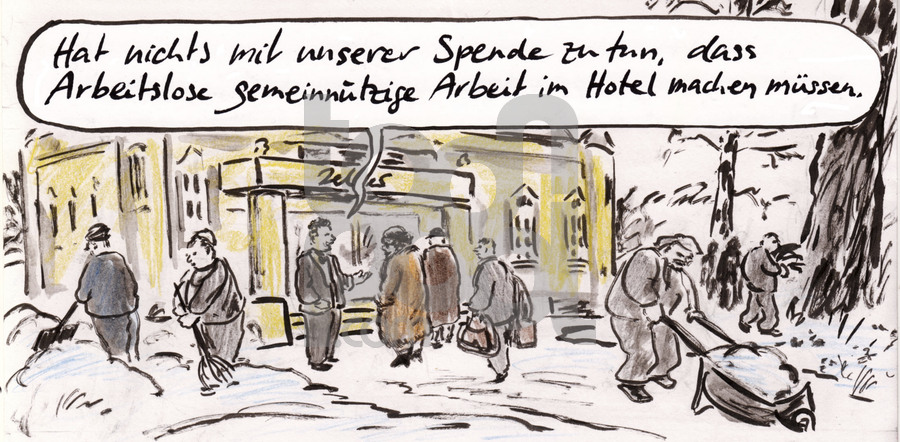 Hat nichts mit unserer Spende zu tun, dass
Arbeitslose gemeinnützige Arbeit im Hotel machen müssen.